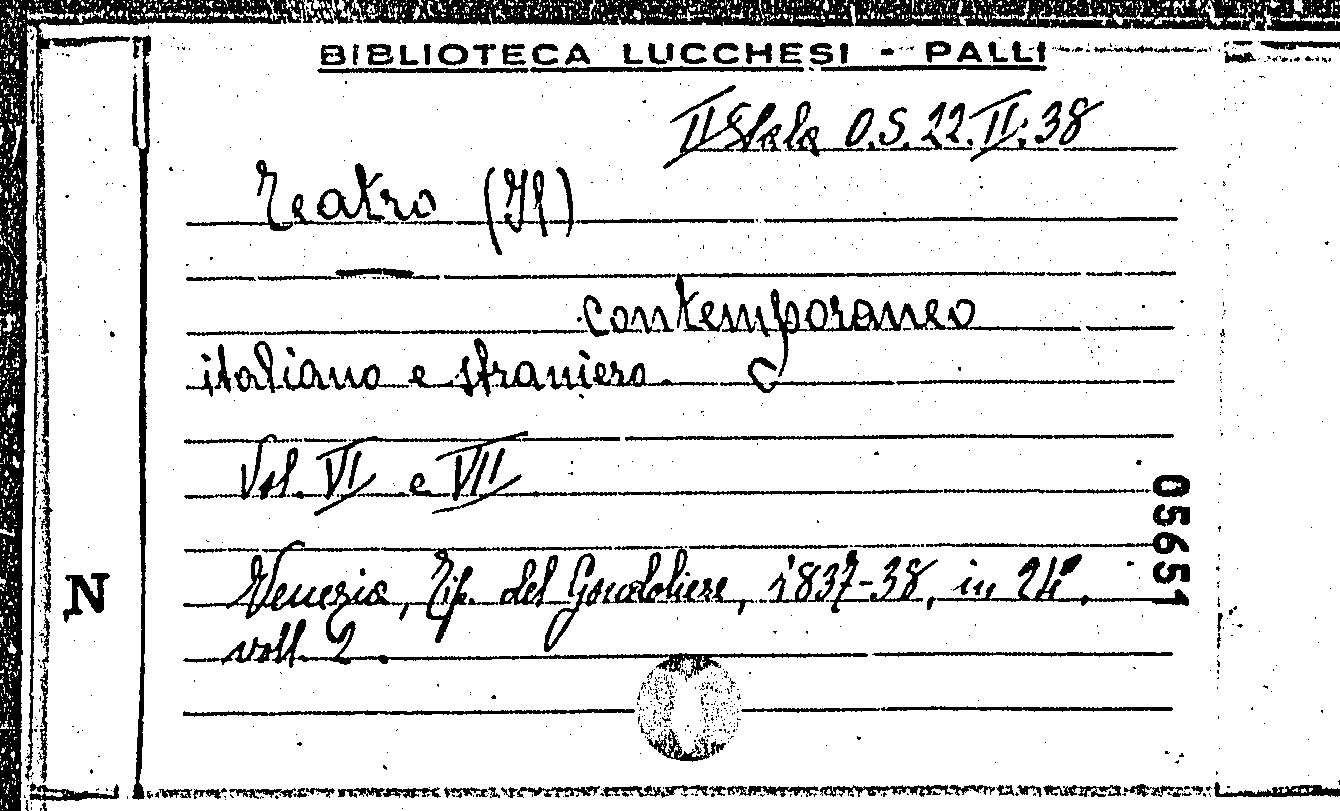 BIBLIOTECA LUCCHESI - PALLI
II Sala O.S. 22.II.38
Teatro (Il)
contemporaneo
italiano e straniero.
Vol. VI e VII
Venezia, Tip. del Gondoliere, 1837-38, in 24°,
voll. 2.
N
05651